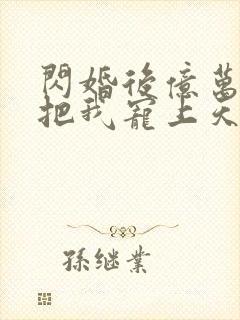 閃婚後億萬
把我寵上天
孫继業